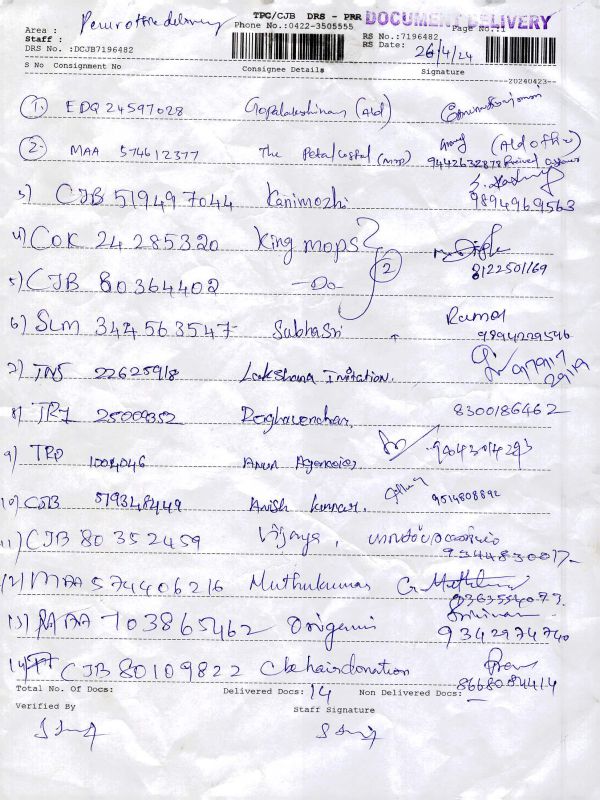 TPC/CJB DRS - PRR DOCUMENT DELIVERY
Area : delivery Phone No.:0422-3505555 Page No.:1
Staff : RS No.:7196482
DRS No. :DCJB7196482 RS Date: 26/4/24
S No Consignment No Consignee Details Signature
20240423--
1. EDQ 24597028 Gopalakrishnan (Ald)
2. MAA 574612377 The Petal Costal (mop) (Ald office)
9442632878
3) CJB 519497044 Kanimozhi
9894969563
4) COK 24 285320 King mops 2
8122501169
5) CJB 80364402 -Do-
6) SLM 344563547 Subhasri Ramesh
9894229546
7) 22625918 Lakshana Invitation.
8) TRZ 25009352 Raghavendran. 8300186462
9) TRD 1004046 Arun Agencies 9843014293
10) CJB 519348449 Anish kumar. 9514808892
11) CJB 80352459 Vijaya,
9344830017
12) MAA 574406216 Muthukumar G. Muthukumar
9363554073.
13) MAA 703865462 Origenis
9342974740
14) CJB 80109822 Cbe hairdonation
8668084414
Total No. Of Docs: Delivered Docs: 14 Non Delivered Docs: —
Verified By Staff Signature